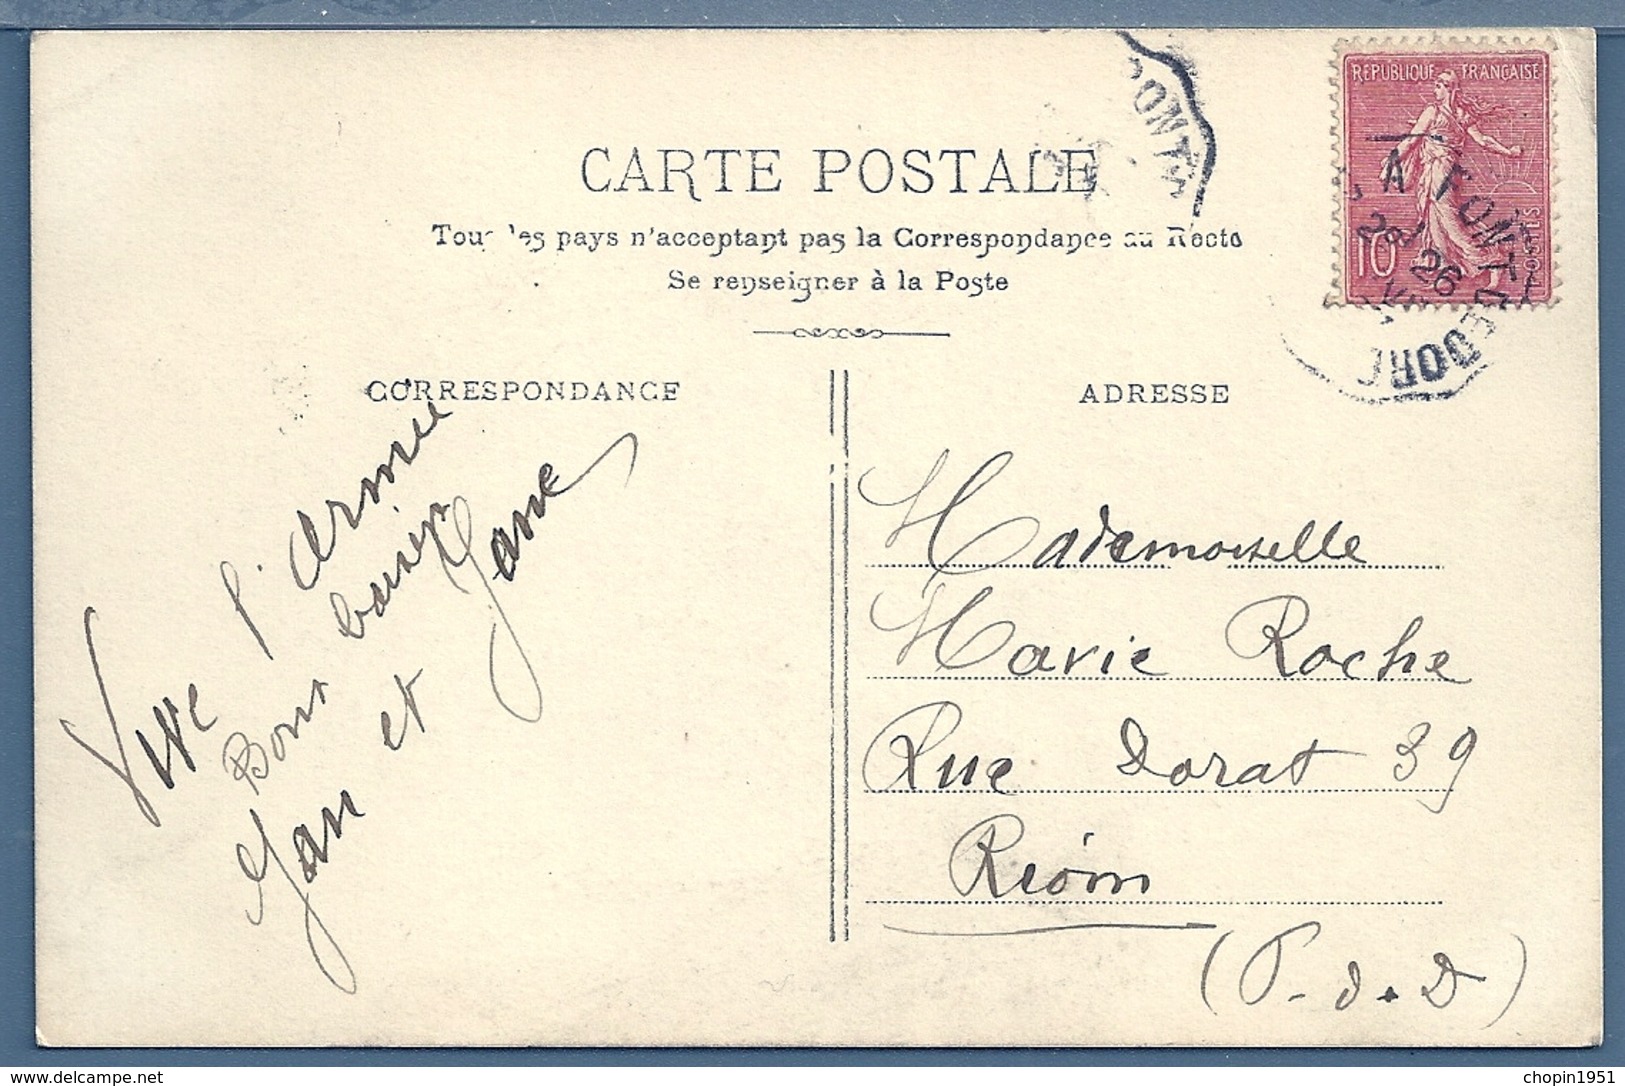 CARTE POSTALE
Tous les pays n'acceptant pas la Correspondance au Recto
Se renseigner à la Poste
CORRESPONDANCE
ADRESSE
REPUBLIQUE FRANÇAISE
10
POSTES
A FONT
26
Vive l'armée
Bons baisers
Jan et Jane
Mademoiselle
Marie Roche
Rue Dorat 39
Riom
(P. d. D)
delcampe.net
chopin1951